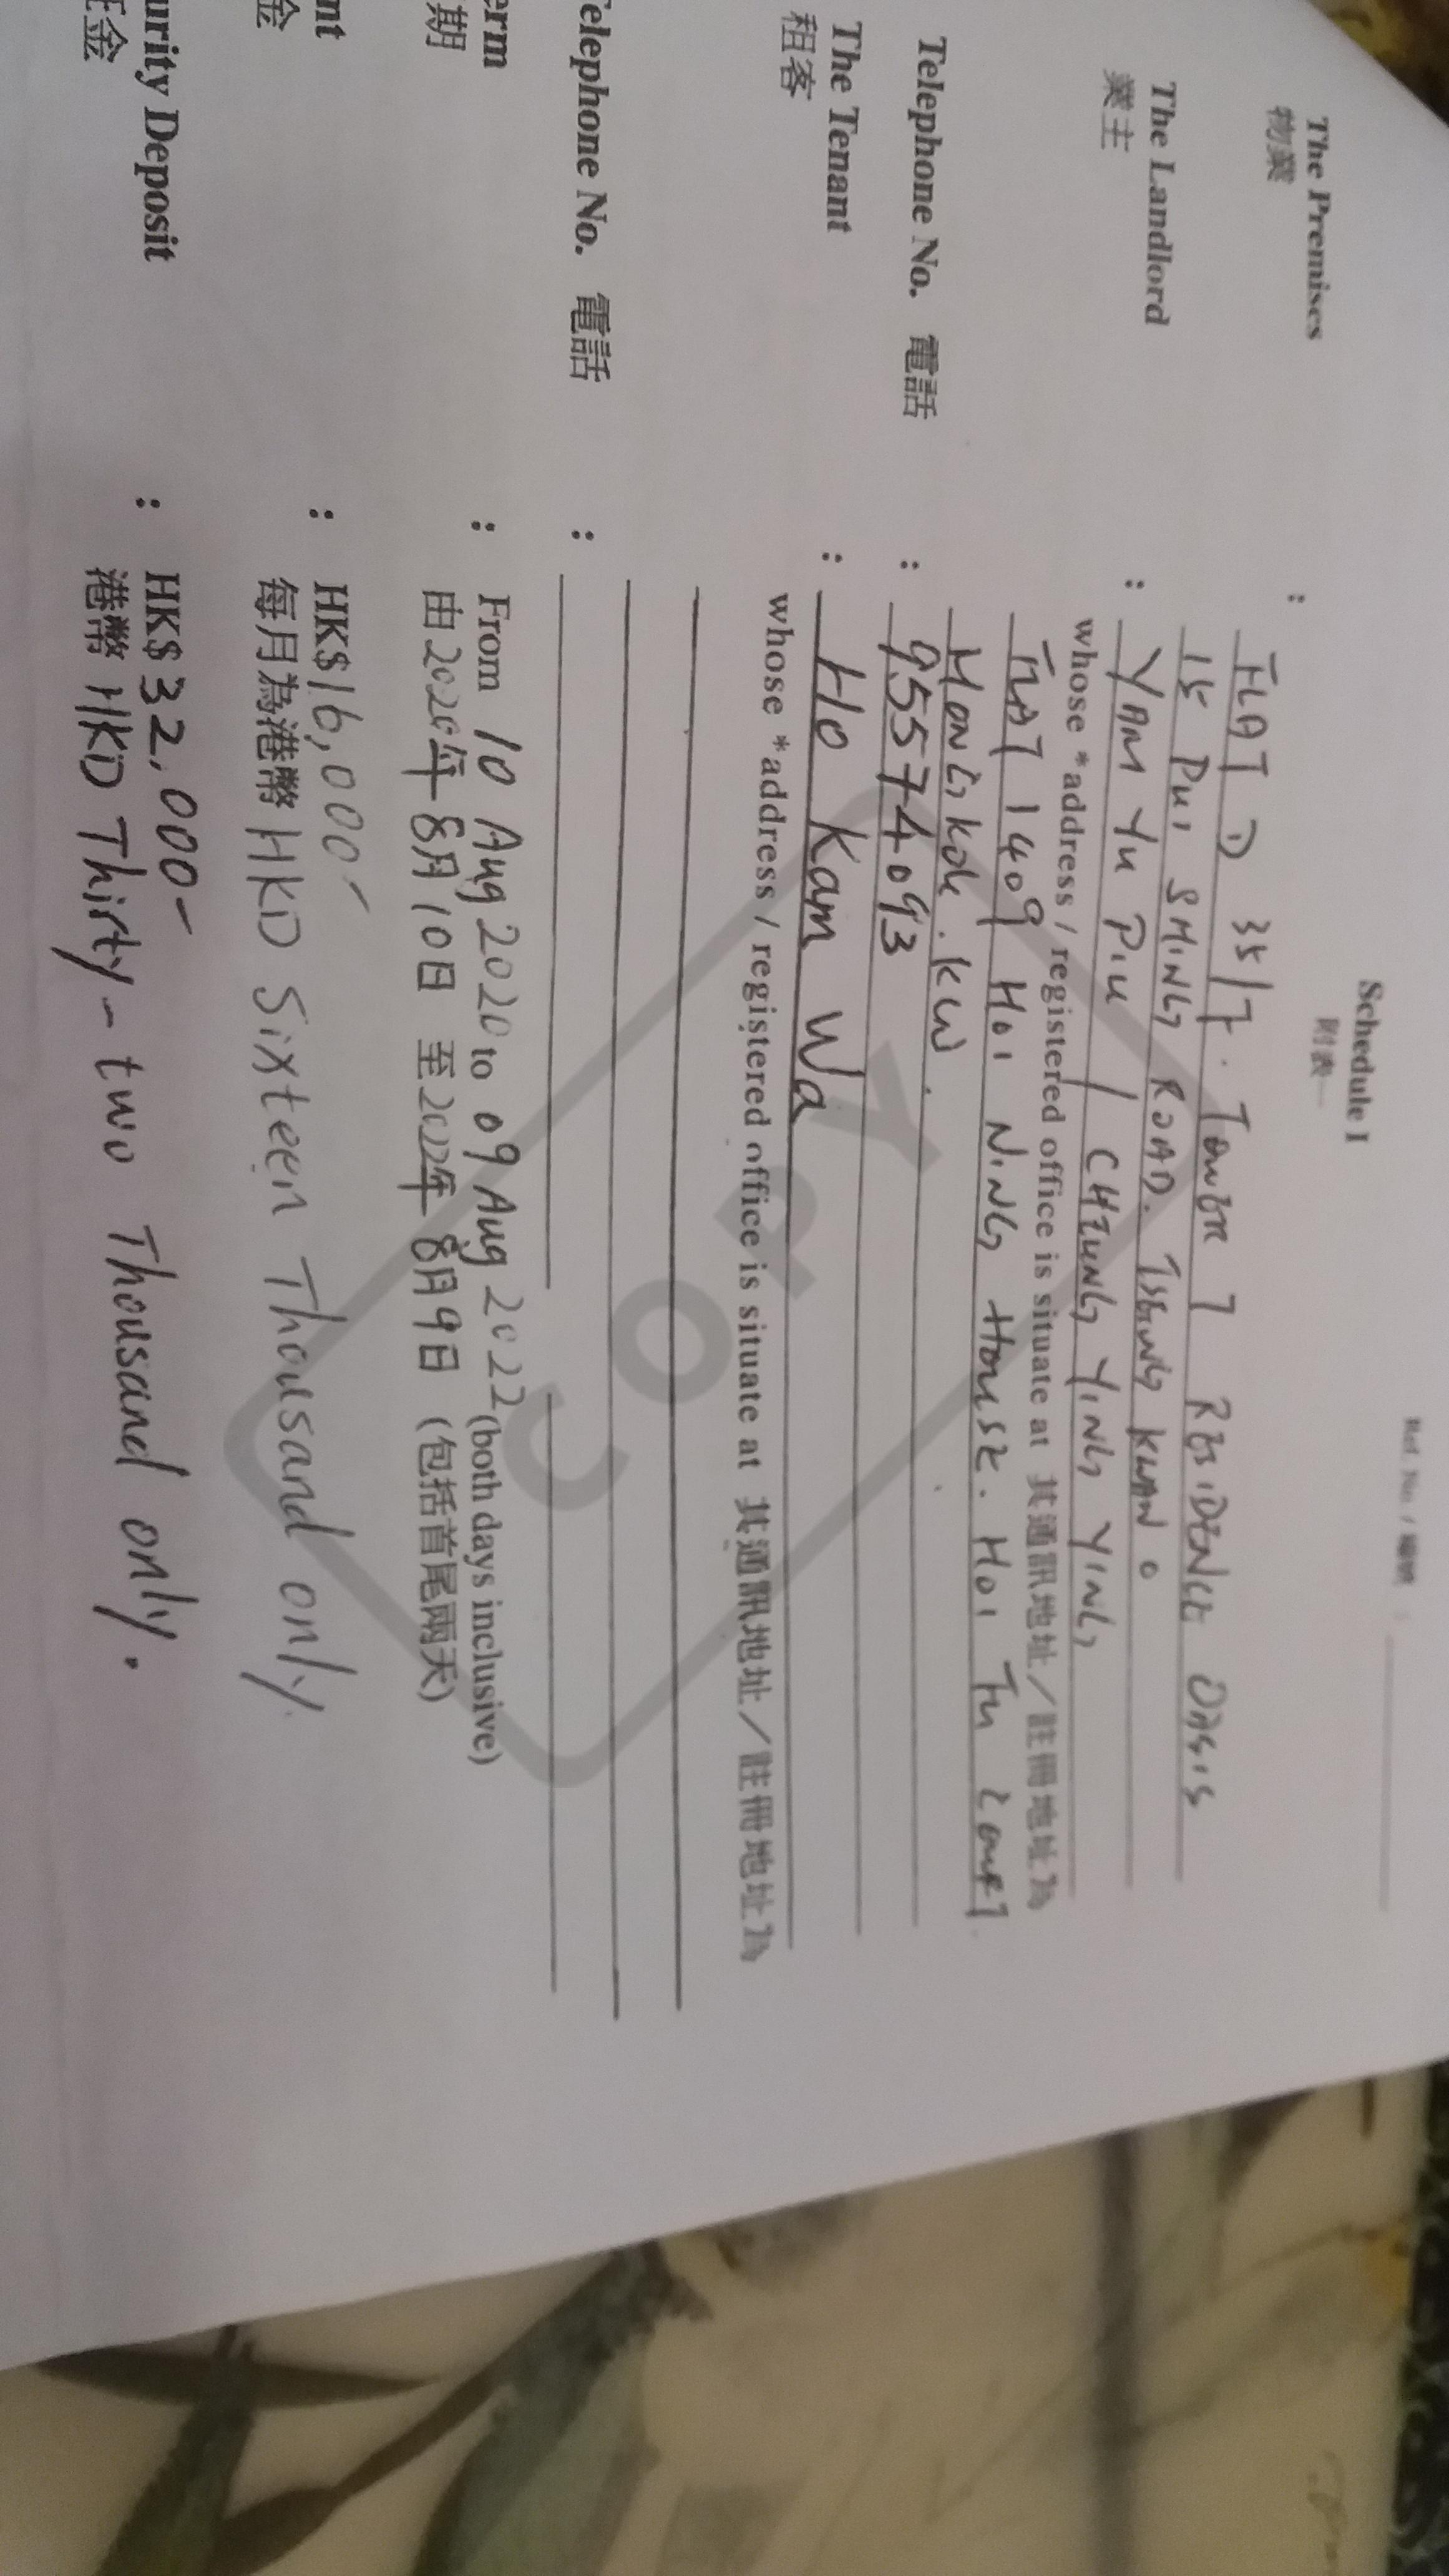 Ref. No. / 編號 :
Schedule I
附表一
The Premises : FLAT D 35/F. TOWER 7 RESIDENCE OASIS
物業 15 PUI SHING ROAD. TSEUNG KWAN O
The Landlord : YAM YU PIU / CHEUNG YING YING
業主 whose *address / registered office is situate at 其通訊地址／註冊地址為
FLAT 1409 HOI NING HOUSE. HOI FU COURT
MONGKOK. KLN.
Telephone No. 電話 : 95574093
The Tenant : Ho Kam Wa
租客 whose *address / registered office is situate at 其通訊地址／註冊地址為
elephone No. 電話 :
erm : From 10 Aug 2020 to 09 Aug 2022 (both days inclusive)
期 由2020年 8月10日 至2022年 8月9日 （包括首尾兩天）
nt : HK$16,000-
金 每月為港幣 HKD Sixteen Thousand only.
urity Deposit : HK$ 32,000-
證金 港幣 HKD Thirty-two Thousand only.
COPY